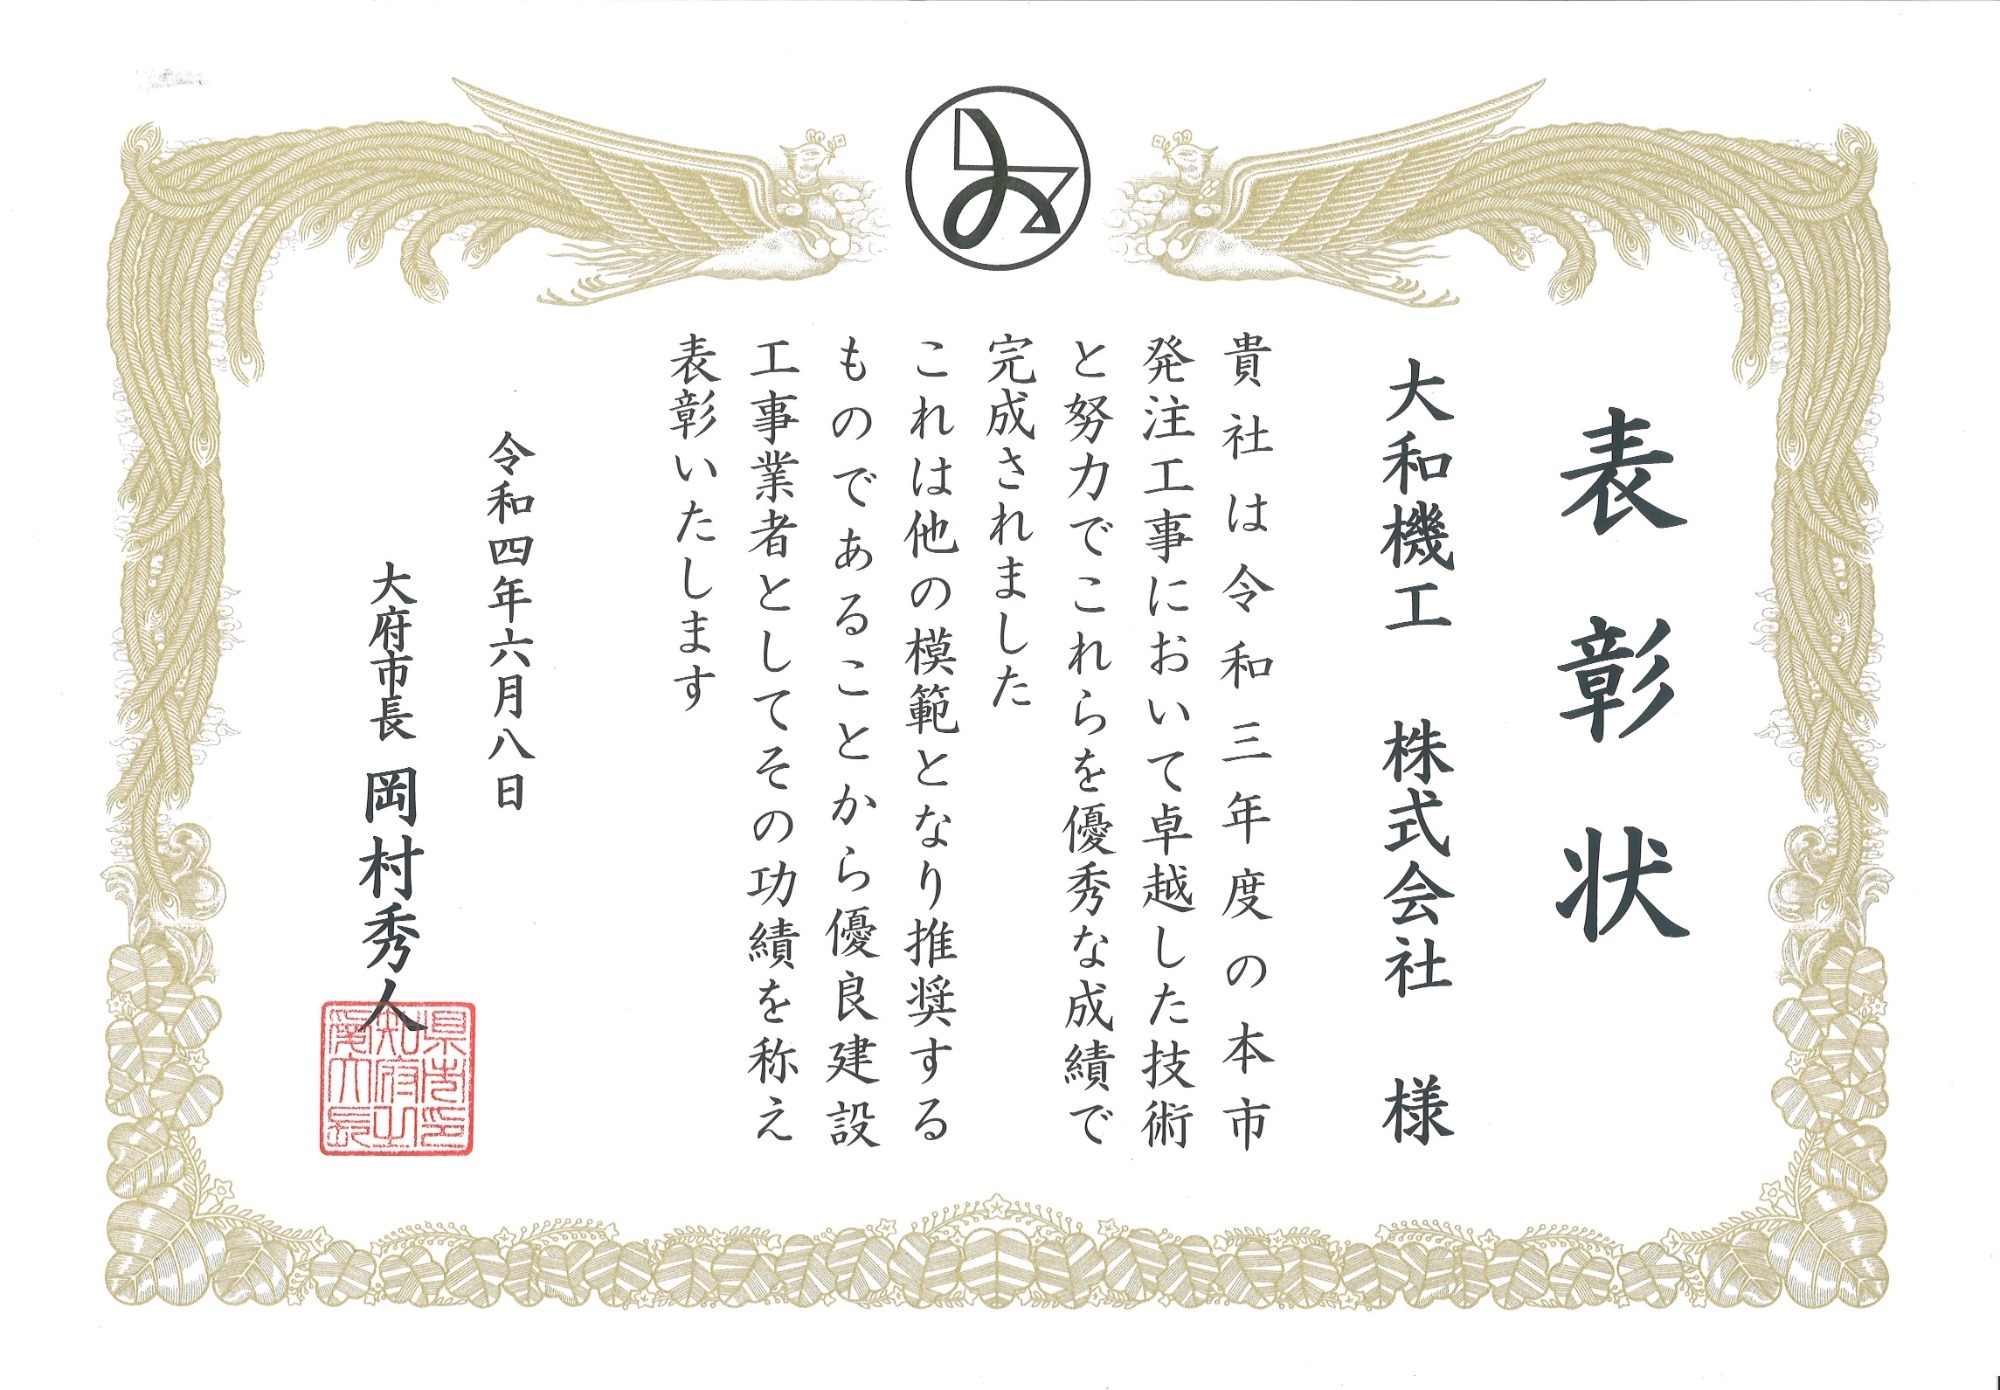 表彰状
大和機工 株式会社 様
貴社は令和三年度の本市
発注工事において卓越した技術
と努力でこれらを優秀な成績で
完成されました
これは他の模範となり推奨する
ものであることから優良建設
工事業者としてその功績を称え
表彰いたします
令和四年六月八日
大府市長 岡村秀人
愛知県大府市長之印